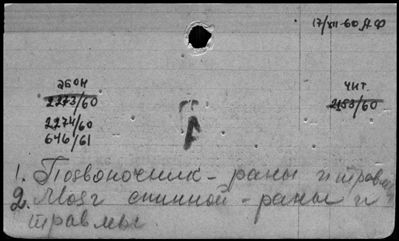 17/XII-60 Д.Ф
абон
2273/60
2274/60
646/61
чит.
2153/60
А
1. Позвоночник - раны и травмы
2. Мозг спинной - раны и
травмы.